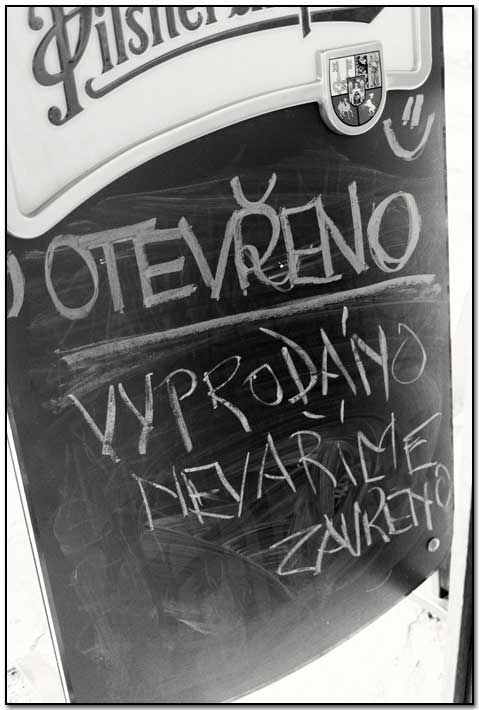 Pilsner
OTEVŘENO
VYPRODÁNO
NEVAŘÍME
ZAVŘENO